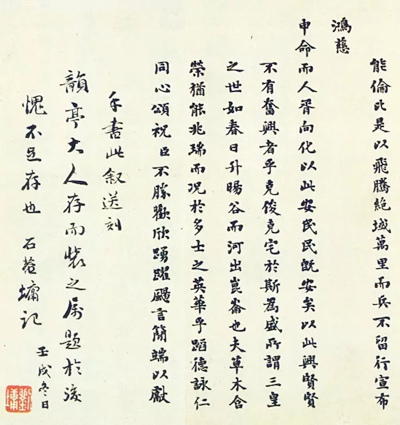 能倫比是以飛騰絶域萬里而兵不留行宣布
鴻慈
申命而人胥向化以此安民民既安矣以此興賢賢
不有奮興者乎克俊克宅於斯為盛所謂三皇
之世如春日升暘谷而河出崑崙也夫草木含
榮猶能兆瑞而況於多士之英華乎蹈德詠仁
同心頌祝臣不勝歡欣踴躍颺言簡端以獻
手書此叙送刻
韻亭大人存而裝之属題於後
愧不足存也 石菴墉記
壬戌冬日